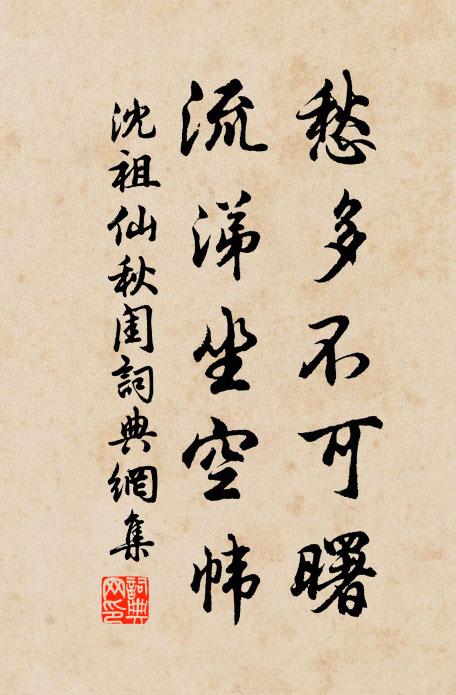 愁多不可曙
流涕坐空帏
沈祖仙秋闺词典網集
詞典網印